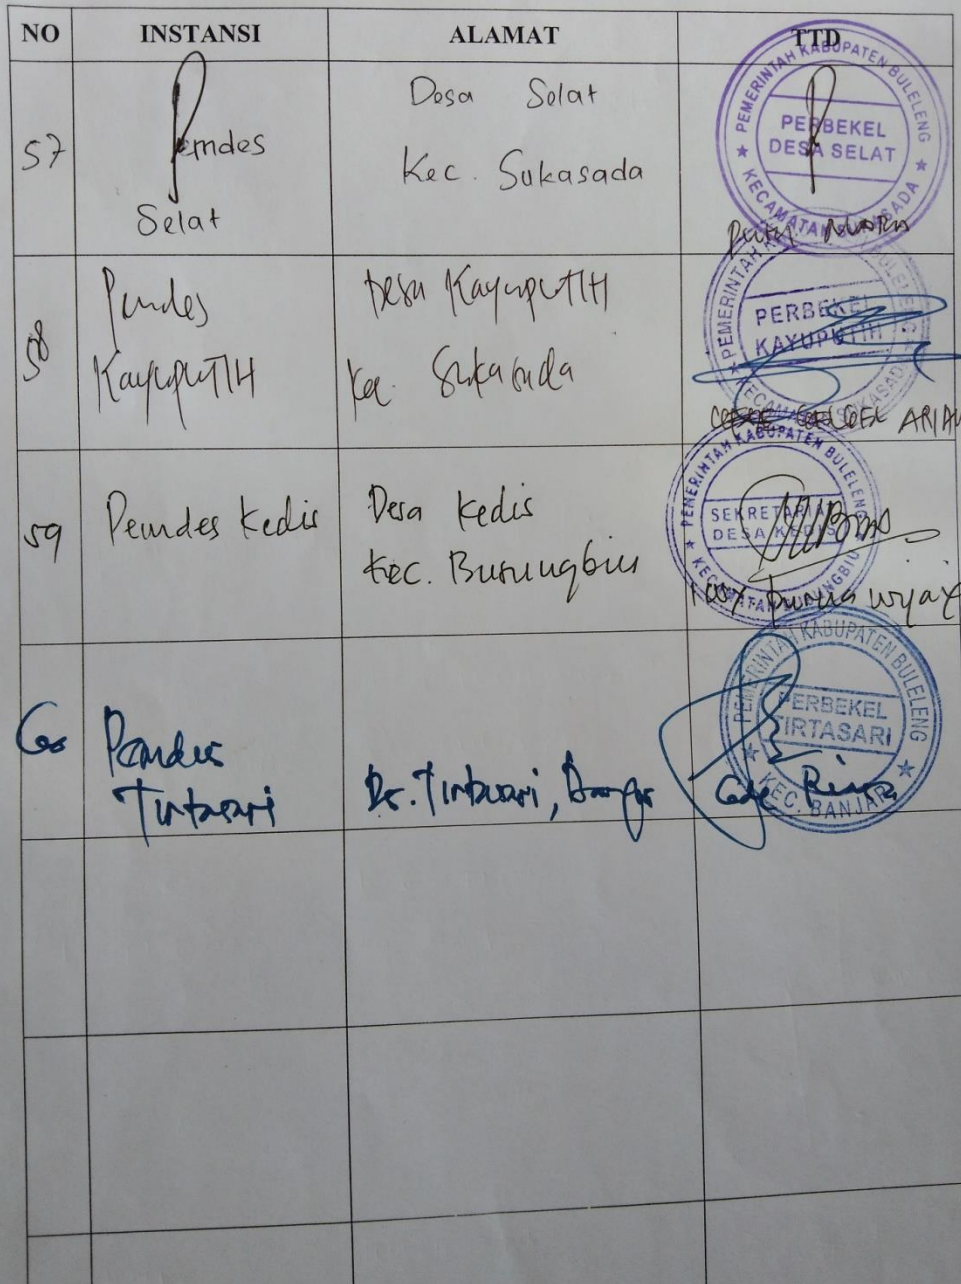 NO INSTANSI ALAMAT TTD
57
Pemdes
Selat
Desa Selat
Kec. Sukasada
PEMERINTAH KABUPATEN BULELENG
PERBEKEL
DESA SELAT
KECAMATAN SUKASADA
58
Pemdes
KayuputIH
Desa KayuputIH
Kec. Sukasada
PEMERINTAH KABUPATEN BULELENG
PERBEKEL
KAYUPUTIH
KECAMATAN SUKASADA
GELGEL ARIAN
59
Pemdes Kedis
Desa Kedis
Kec. Busungbiu
PEMERINTAH KABUPATEN BULELENG
SEKRETARIAT
DESA KEDIS
KECAMATAN BUSUNGBIU
wijaya
60
Pemdes
Tirtasari
Ds. Tirtasari, Banjar
PEMERINTAH KABUPATEN BULELENG
PERBEKEL
TIRTASARI
KEC. BANJAR
Gede Riasa